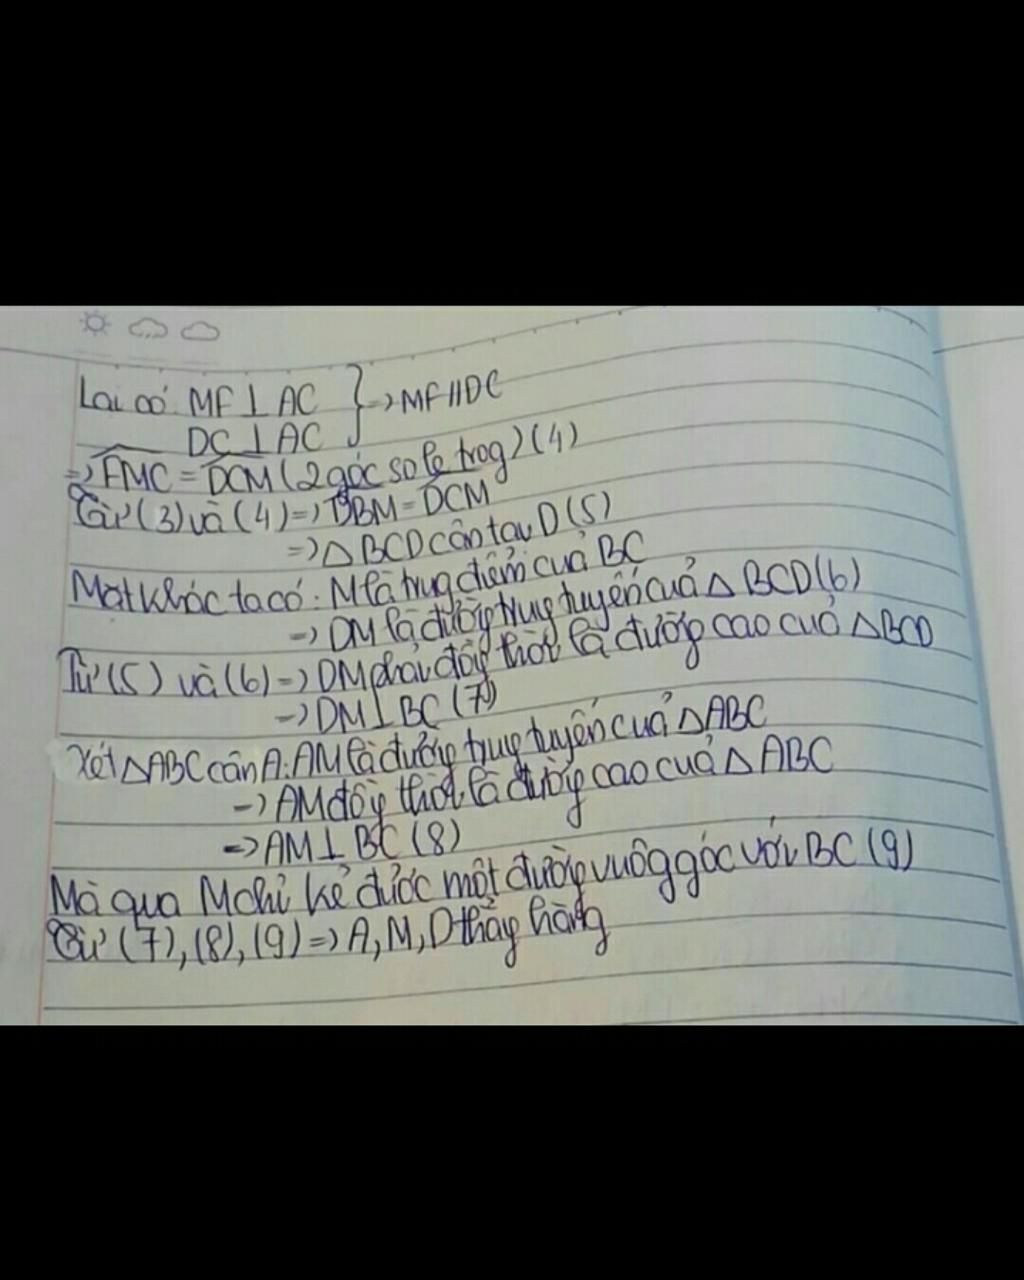 Lại có: MF ⊥ AC } → MF // DC
DC ⊥ AC
=> FMC = DCM (2 góc so le trog) (4)
Từ (3) và (4) => DBM = DCM
=> △ BCD cân tại D (5)
Mặt khác ta có: M là trug điểm của BC
→ DM là đường trug tuyến của △ BCD (6)
Từ (5) và (6) => DM phải đồg thời là đườg cao của △BCD
→ DM ⊥ BC (7)
Xét △ABC cân A: AM là đườg trug tuyến của △ABC
→ AM đồg thời là đườg cao của △ ABC
→ AM ⊥ BC (8)
Mà qua M chỉ kẻ được một đườg vuôg góc với BC (9)
Từ (7), (8), (9) => A, M, D thẳg hàng